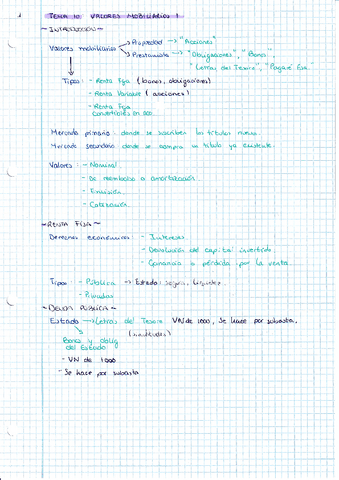 TEMA 10: VALORES MOBILIARIOS 1
~ INTRODUCCIÓN ~
Valores mobiliarios → Propiedad → "Acciones"
→ Prestamista → "Obligaciones", "Bonos",
"Letras del Tesoro", "Pagaré Esa."
Tipos: - Renta Fija (bonos, obligaciones)
- Renta Variable (acciones)
- Renta Fija
convertibles en acc.
Mercado primario: donde se suscriben los títulos nuevos.
Mercado secundario: donde se compra un título ya existente.
Valores: - Nominal.
- De reembolso o amortización.
- Emisión.
- Cotización.
~ RENTA FIJA ~
Derechos económicos: - Intereses.
- Devolución del capital invertido.
- Ganancia o pérdida por la venta.
Tipos: - Pública → Estado: segura, liquidez.
- Privada
~ DEUDA PÚBLICA ~
Estado → Letras del Tesoro: VN de 1000, Se hace por subasta.
Bonos y oblig. del Estado
- VN de 1000
- Se hace por subasta